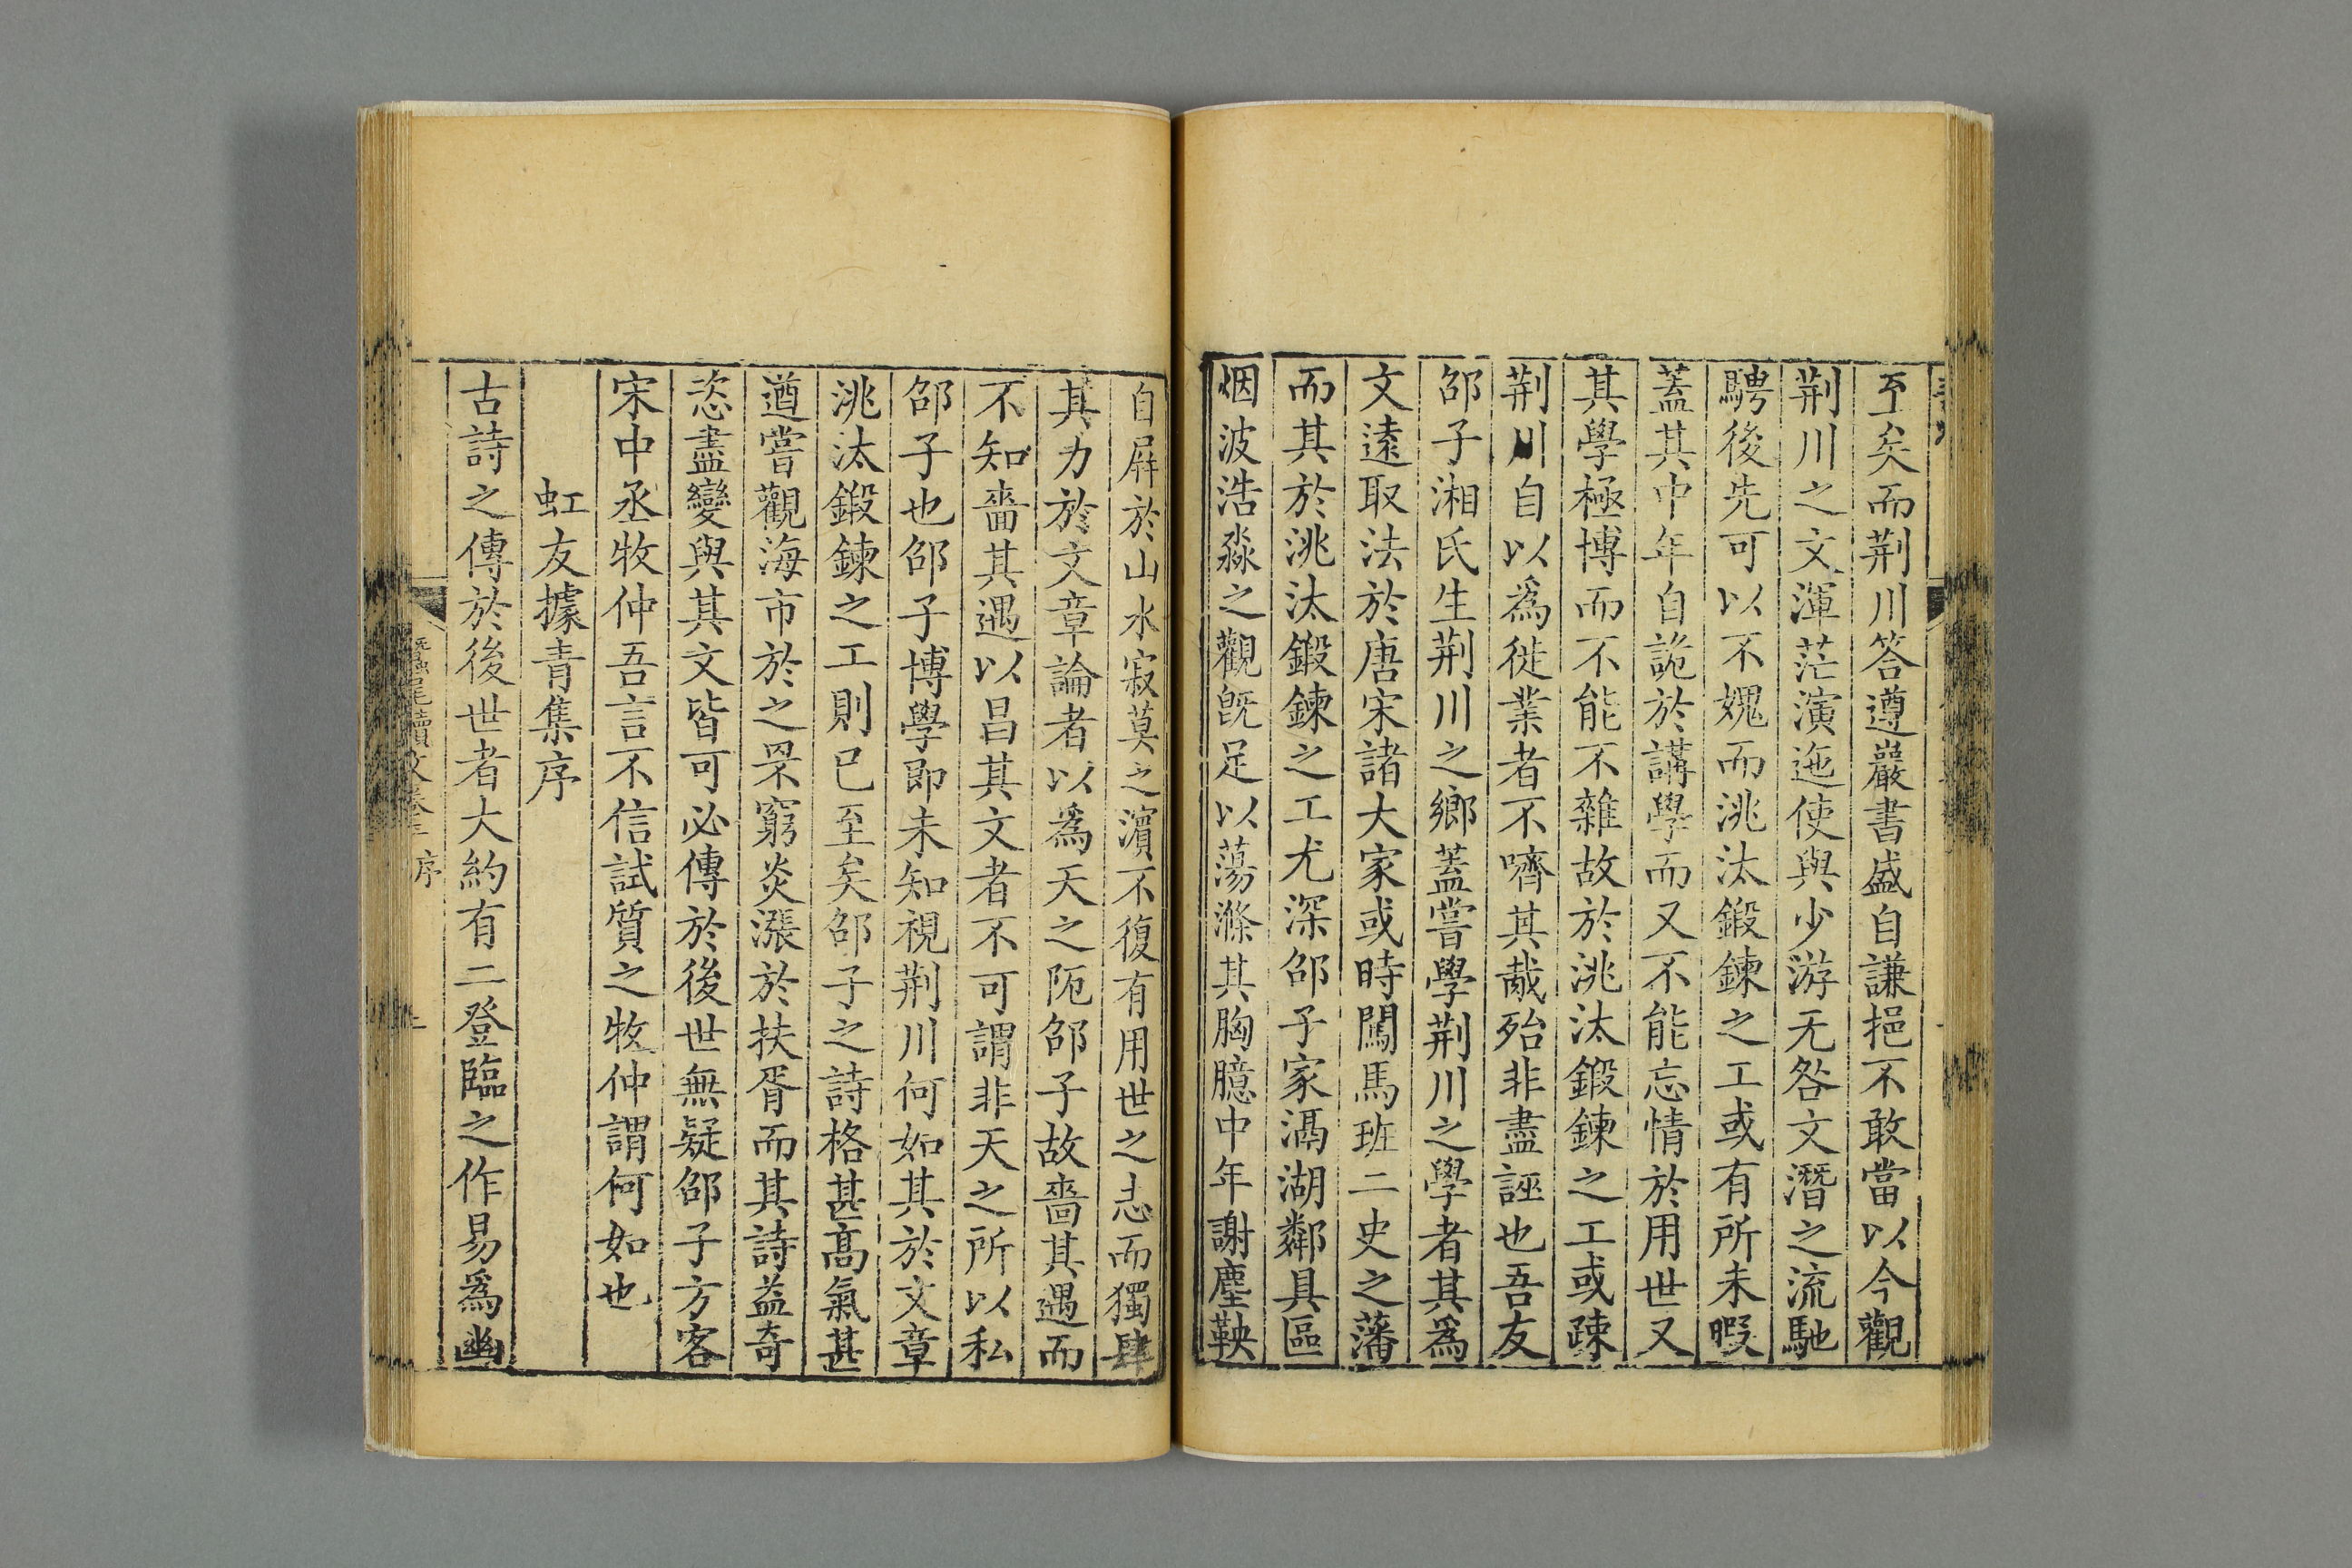 至矣而荆川答遵巖書盛自謙挹不敢當以今觀
荆川之文渾茫演迤使與少游无咎文潛之流馳
騁後先可以不媿而洮汰鍛鍊之工或有所未暇
蓋其中年自詭於講學而又不能忘情於用世又
其學極博而不能不雜故於洮汰鍛鍊之工或踈
荆川自以為徙業者不嚌其胾殆非盡誣也吾友
邵子湘氏生荆川之鄉蓋嘗學荆川之學者其為
文遠取法於唐宋諸大家或時闖馬班二史之藩
而其於洮汰鍛鍊之工尤深邵子家滆湖鄰具區
烟波浩淼之觀旣足以蕩滌其胸臆中年謝塵鞅
自屛於山水寂莫之濵不復有用世之志而獨肆
其力於文章論者以為天之阨邵子故嗇其遇而
不知嗇其遇以昌其文者不可謂非天之所以私
邵子也邵子博學卽未知視荆川何如其於文章
洮汰鍛鍊之工則已至矣邵子之詩格甚髙氣甚
遒嘗觀海市於之罘窮炎漲於扶胥而其詩益奇
恣盡變與其文皆可必傳於後世無疑邵子方客
宋中丞牧仲吾言不信試質之牧仲謂何如也
虹友據青集序
古詩之傳於後世者大約有二登臨之作易為幽
蠶尾續文卷三 序